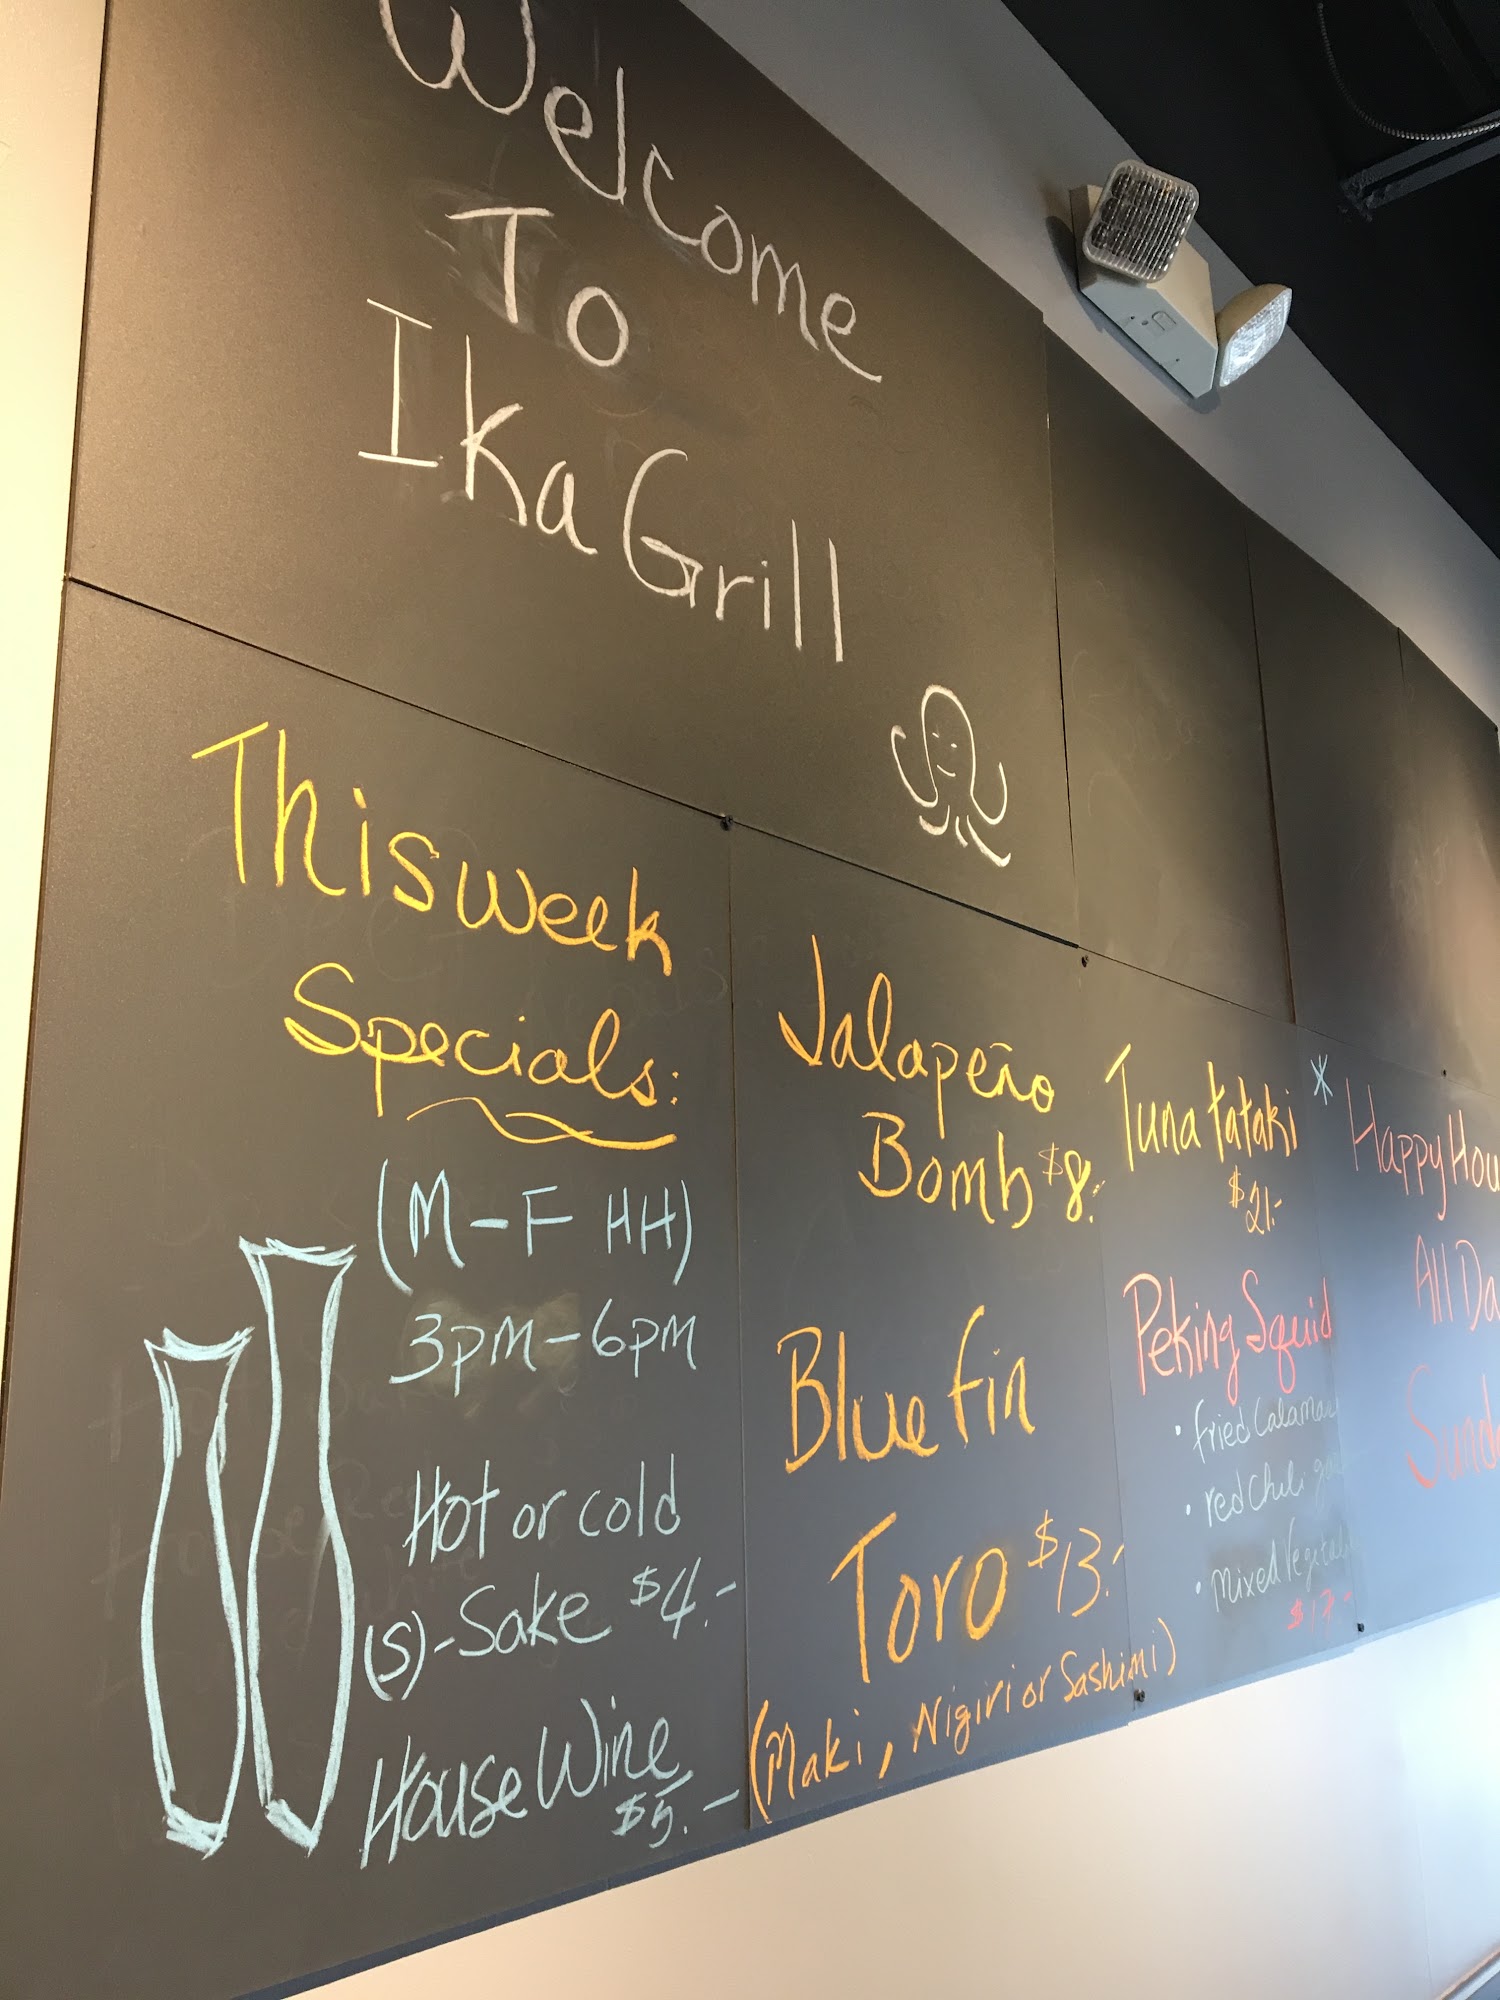 Welcome
To
Ika Grill
This week
Specials:
(M-F HH)
3pm-6pm
Hot or cold
(s)-Sake $4.-
House Wine
$5.-
Jalapeño
Bomb $8.-
Blue fin
Toro $13.-
(Maki, Nigiri or Sashimi)
Tuna tataki
$21.-
Peking Squid
• fried Calamari
• red Chili
• mixed
$17.-
* Happy Hou
All Da
Sund